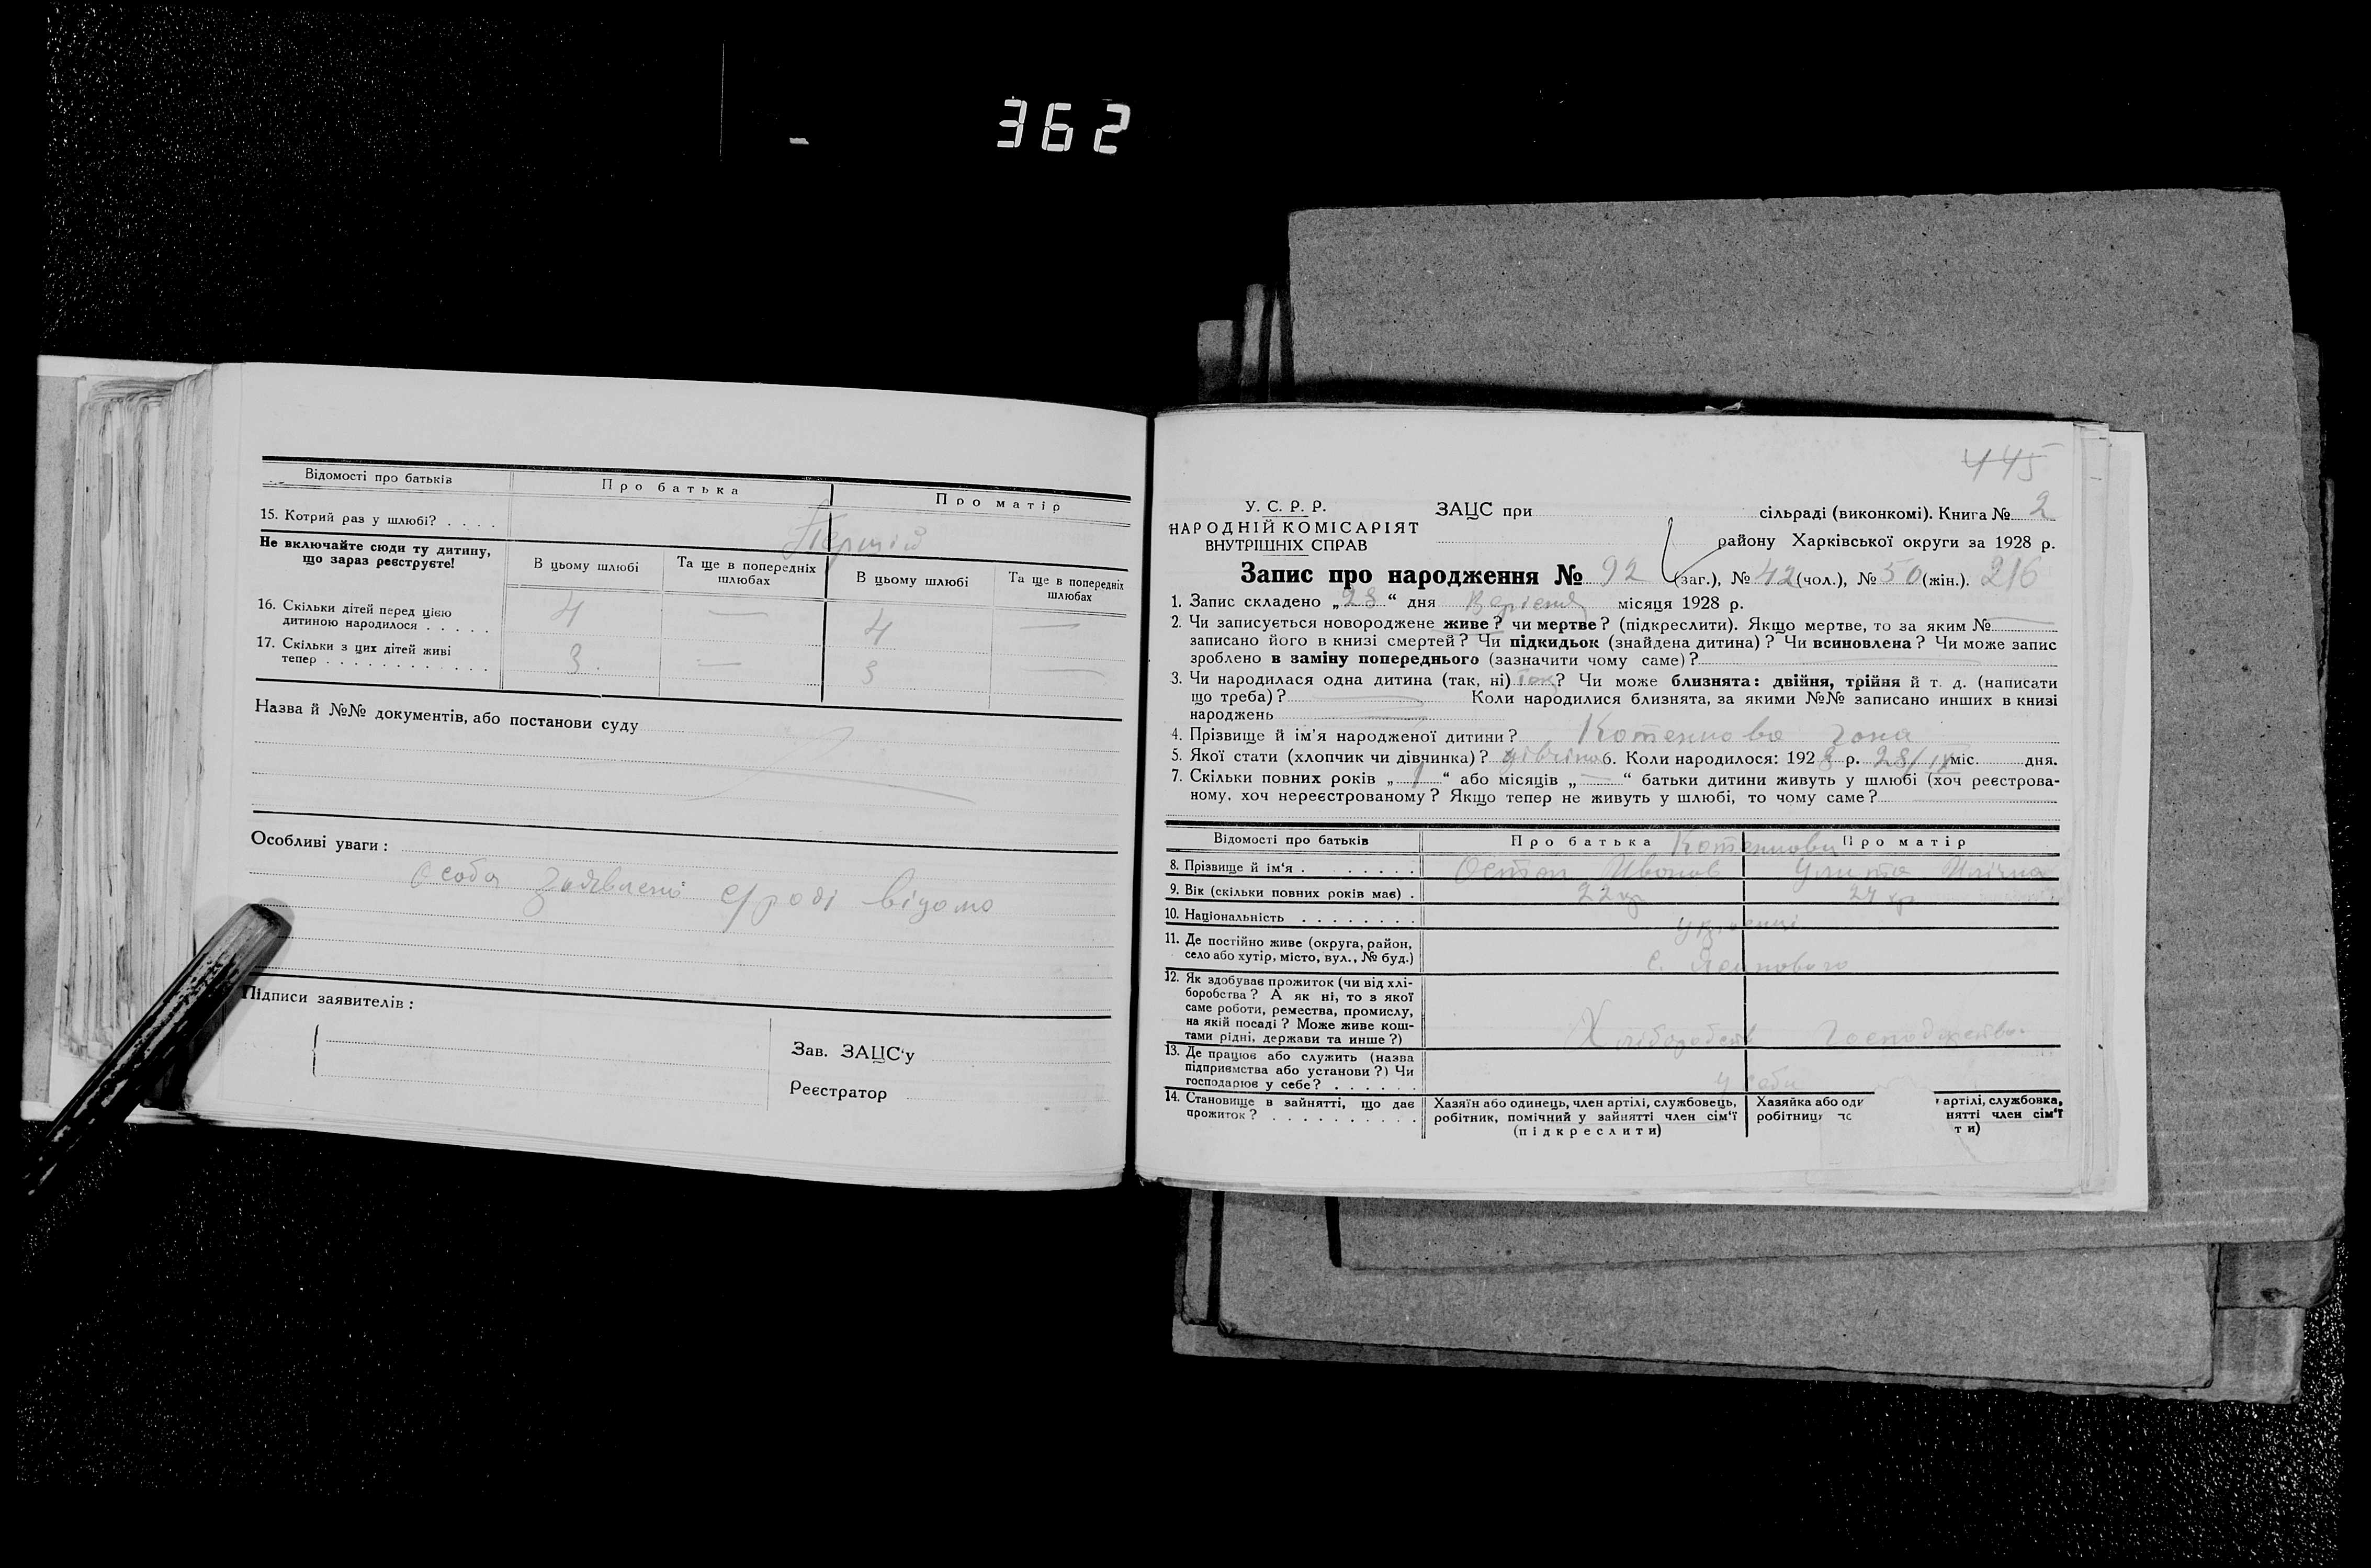 362
Відомості про батьків
Про батька
Про матір
15. Котрий раз у шлюбі? . . . .
Перший
Не включайте сюди ту дитину,
що зараз реєструєте!
В цьому шлюбі
Та ще в попередніх
шлюбах
В цьому шлюбі
Та ще в попередніх
шлюбах
16. Скільки дітей перед цією
дитиною народилося . . . . .
4 — 4 —
17. Скільки з цих дітей живі
тепер . . . . . . . . . . . .
3 — 3 —
Назва й №№ документів, або постанови суду
Особливі уваги:
Особа відомо
Підписи заявителів:
Зав. ЗАЦС'у
Реєстратор
445
У. С. Р. Р.
НАРОДНІЙ КОМІСАРІЯТ
ВНУТРІШНІХ СПРАВ
ЗАЦС при сільраді (виконкомі). Книга № 2
району Харківської округи за 1928 р.
Запис про народження № 92 (заг.), № 42 (чол.), № 50 (жін.). 216
1. Запис складено „28“ дня місяця 1928 р.
2. Чи записується новороджене живе? чи мертве? (підкреслити). Якщо мертве, то за яким №
записано його в книзі смертей? Чи підкидьок (знайдена дитина)? Чи всиновлена? Чи може запис
зроблено в заміну попереднього (зазначити чому саме)?
3. Чи народилася одна дитина (так, ні) так? Чи може близнята: двійня, трійня й т. д. (написати
що треба)? Коли народилися близнята, за якими №№ записано инших в книзі
народжень
4. Прізвище й ім'я народженої дитини?
5. Якої стати (хлопчик чи дівчинка)? 6. Коли народилося: 1928 р. 28/IX міс. дня.
7. Скільки повних років „ “ або місяців „—“ батьки дитини живуть у шлюбі (хоч реєстрова-
ному, хоч нереєстрованому? Якщо тепер не живуть у шлюбі, то чому саме?
Відомості про батьків
Про батька
Про матір
8. Прізвище й ім'я . . . . . . . . .
Остап Иванов
9. Вік (скільки повних років має) .
22
10. Національність . . . . . . . .
11. Де постійно живе (округа, район,
село або хутір, місто, вул., № буд.)
с.
12. Як здобуває прожиток (чи від хлі-
боробства? А як ні, то з якої
саме роботи, ремества, промислу,
на якій посаді? Може живе кош-
тами рідні, держави та инше?)
13. Де працює або служить (назва
підприємства або установи?) Чи
господарює у себе? . . . . . .
14. Становище в зайнятті, що дає
прожиток? . . . . . . . . . .
Хазяїн або одинець, член артілі, службовець,
робітник, помічний у зайнятті член сім'ї
(підкреслити)
Хазяйка або артілі, службовка,
нятті член сім'ї
ти)